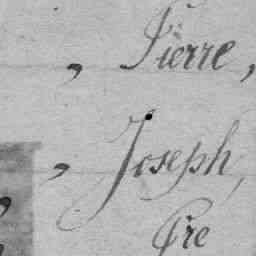 , Pierre,
, Joseph,
Cre